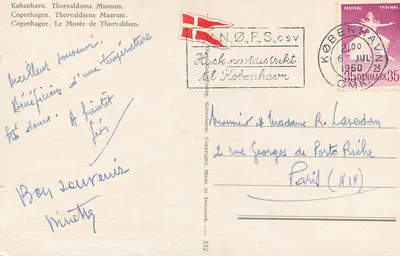 København. Thorvaldsens Museum.
Copenhagen. Thorvaldsens Museum.
Copenhague. Le Musée de Thorvaldsen.
Meilleur souvenir.
Bénéficions d'une température
très douce. A bientôt
Bon souvenir
N.Ø.F.S. osv
Husk postdistrikt
til København
KØBENHAVN
2100
6 JUL 21
1960
OMK
FESTIVAL
17-31 MAJ
35 DANMARK 35
Monsieur et Madame R.
2 rue Georges de Porto Riche
Paris (14)
København. Copyright. Made in Denmark.
532